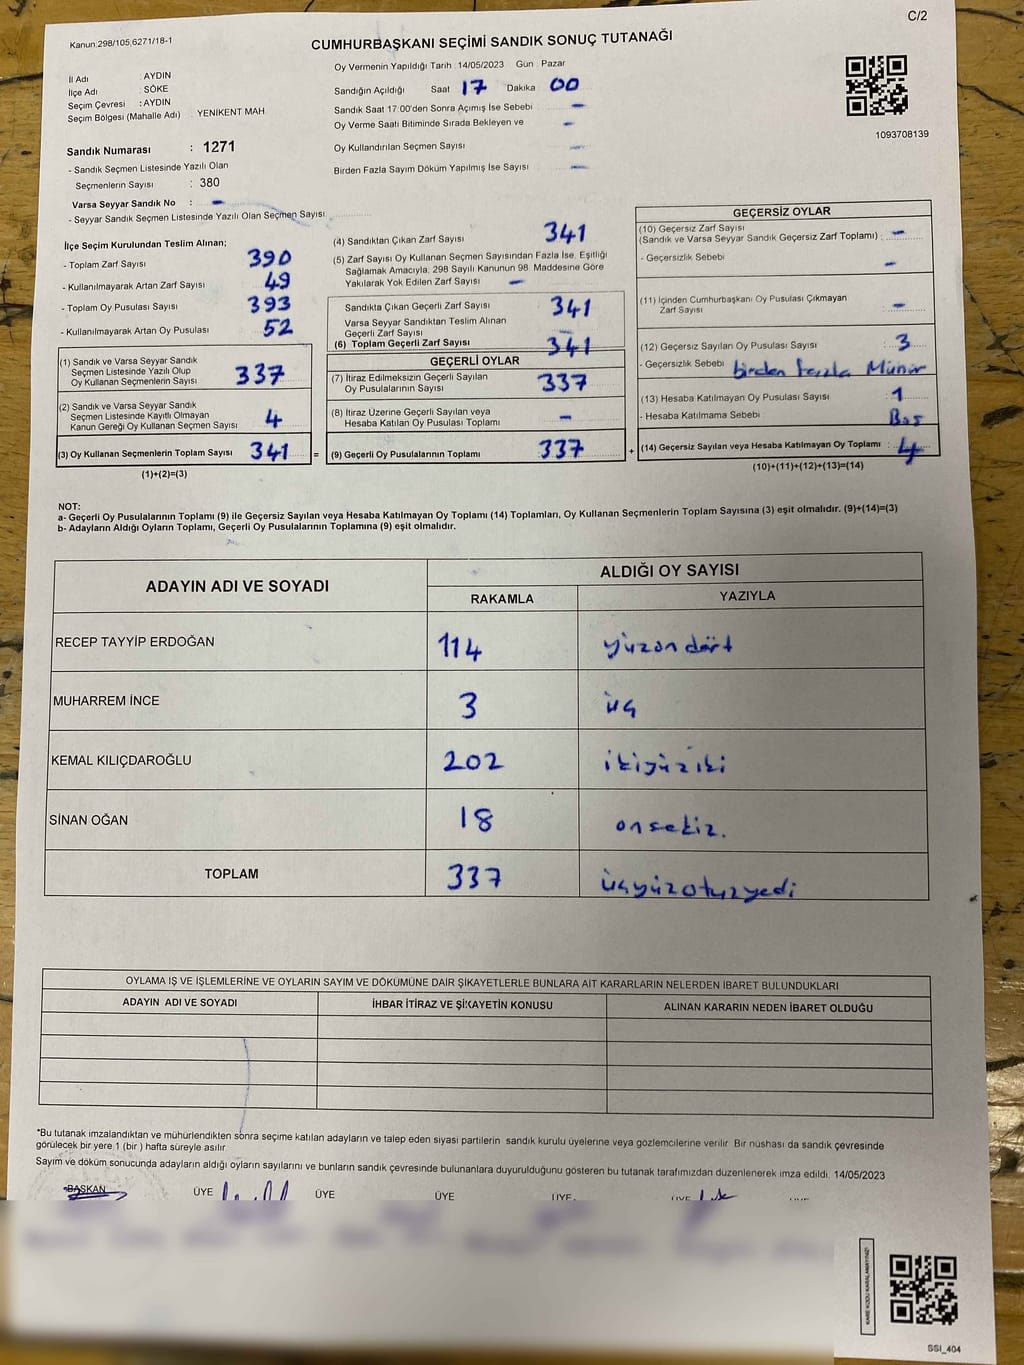 C/2
Kanun:298/105,6271/18-1
CUMHURBAŞKANI SEÇİMİ SANDIK SONUÇ TUTANAĞI
Oy Vermenin Yapıldığı Tarih :14/05/2023 Gün : Pazar
İl Adı : AYDIN
İlçe Adı : SÖKE
Seçim Çevresi : AYDIN
Seçim Bölgesi (Mahalle Adı) : YENIKENT MAH
Sandığın Açıldığı Saat 17 Dakika 00
Sandık Saat 17:00'den Sonra Açımış İse Sebebi -
Oy Verme Saati Bitiminde Sırada Bekleyen ve -
Oy Kullandırılan Seçmen Sayısı -
Birden Fazla Sayım Döküm Yapılmış İse Sayısı -
1093708139
Sandık Numarası : 1271
- Sandık Seçmen Listesinde Yazılı Olan
Seçmenlerin Sayısı : 380
Varsa Seyyar Sandık No : -
- Seyyar Sandık Seçmen Listesinde Yazılı Olan Seçmen Sayısı
İlçe Seçim Kurulundan Teslim Alınan;
- Toplam Zarf Sayısı 390
- Kullanılmayarak Artan Zarf Sayısı 49
- Toplam Oy Pusulası Sayısı 393
- Kullanılmayarak Artan Oy Pusulası 52
(1) Sandık ve Varsa Seyyar Sandık
Seçmen Listesinde Yazılı Olup
Oy Kullanan Seçmenlerin Sayısı 337
(2) Sandık ve Varsa Seyyar Sandık
Seçmen Listesinde Kayıtlı Olmayan
Kanun Gereği Oy Kullanan Seçmen Sayısı 4
(3) Oy Kullanan Seçmenlerin Toplam Sayısı 341 =
(1)+(2)=(3)
(4) Sandıktan Çıkan Zarf Sayısı 341
(5) Zarf Sayısı Oy Kullanan Seçmen Sayısından Fazla İse, Eşitliği
Sağlamak Amacıyla; 298 Sayılı Kanunun 98. Maddesine Göre
Yakılarak Yok Edilen Zarf Sayısı -
Sandıkta Çıkan Geçerli Zarf Sayısı 341
Varsa Seyyar Sandıktan Teslim Alınan
Geçerli Zarf Sayısı -
(6) Toplam Geçerli Zarf Sayısı 341
GEÇERLİ OYLAR
(7) İtiraz Edilmeksizin Geçerli Sayılan
Oy Pusulalarının Sayısı 337
(8) İtiraz Üzerine Geçerli Sayılan veya
Hesaba Katılan Oy Pusulası Toplamı -
(9) Geçerli Oy Pusulalarının Toplamı 337 +
GEÇERSİZ OYLAR
(10) Geçersiz Zarf Sayısı
(Sandık ve Varsa Seyyar Sandık Geçersiz Zarf Toplamı) : -
- Geçersizlik Sebebi -
(11) İçinden Cumhurbaşkanı Oy Pusulası Çıkmayan
Zarf Sayısı -
(12) Geçersiz Sayılan Oy Pusulası Sayısı : 3
- Geçersizlik Sebebi birden fazla Mühür
(13) Hesaba Katılmayan Oy Pusulası Sayısı : 1
- Hesaba Katılmama Sebebi Boş
(14) Geçersiz Sayılan veya Hesaba Katılmayan Oy Toplamı : 4
(10)+(11)+(12)+(13)=(14)
NOT:
a- Geçerli Oy Pusulalarının Toplamı (9) ile Geçersiz Sayılan veya Hesaba Katılmayan Oy Toplamı (14) Toplamları, Oy Kullanan Seçmenlerin Toplam Sayısına (3) eşit olmalıdır. (9)+(14)=(3)
b- Adayların Aldığı Oyların Toplamı, Geçerli Oy Pusulalarının Toplamına (9) eşit olmalıdır.
ADAYIN ADI VE SOYADI
ALDIĞI OY SAYISI
RAKAMLA YAZIYLA
RECEP TAYYİP ERDOĞAN 114 yüzondört
MUHARREM İNCE 3 üç
KEMAL KILIÇDAROĞLU 202 ikiyüziki
SİNAN OĞAN 18 onsekiz.
TOPLAM 337 üçyüzotuzyedi
OYLAMA İŞ VE İŞLEMLERİNE VE OYLARIN SAYIM VE DÖKÜMÜNE DAİR ŞİKAYETLERLE BUNLARA AİT KARARLARIN NELERDEN İBARET BULUNDUKLARI
ADAYIN ADI VE SOYADI İHBAR İTİRAZ VE ŞİKAYETİN KONUSU ALINAN KARARIN NEDEN İBARET OLDUĞU
*Bu tutanak imzalandıktan ve mühürlendikten sonra seçime katılan adayların ve talep eden siyasi partilerin sandık kurulu üyelerine veya gözlemcilerine verilir. Bir nüshası da sandık çevresinde
görülecek bir yere 1 (bir ) hafta süreyle asılır.
Sayım ve döküm sonucunda adayların aldığı oyların sayılarını ve bunların sandık çevresinde bulunanlara duyurulduğunu gösteren bu tutanak tarafımızdan düzenlenerek imza edildi. 14/05/2023
BAŞKAN ÜYE ÜYE ÜYE ÜYE ÜYE
KARE KODU KARALAMAYINIZ!
SSI_404